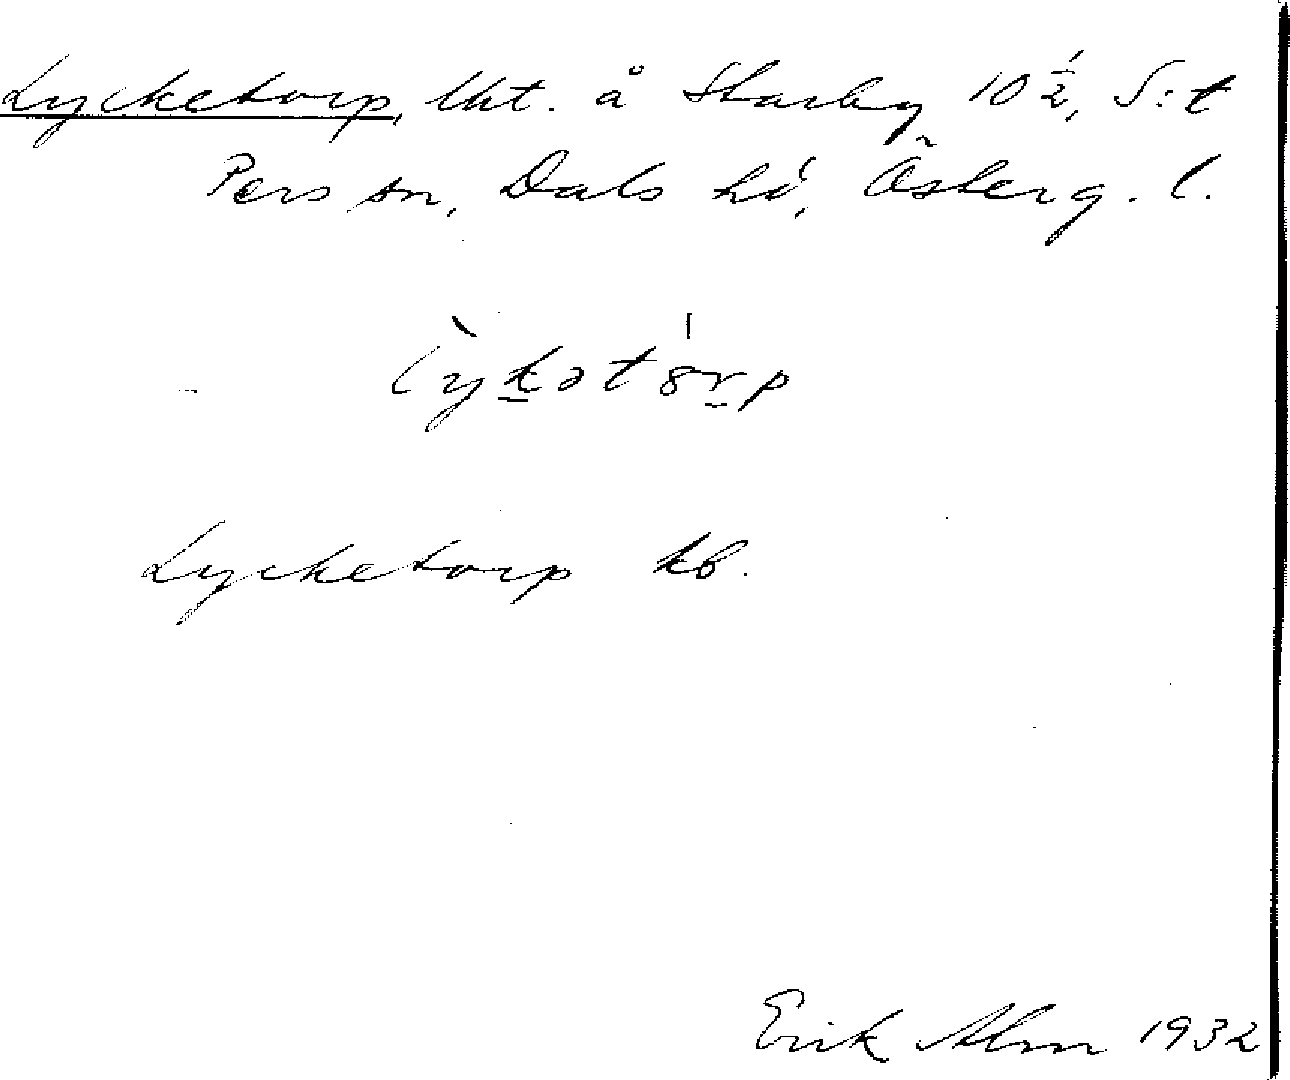 Lycketorp, lht. å Starby 10 1/2, S:t
Pers sn, Dals hd, Österg. l.
lỳkətórp
Lycketorp kb.
Erik Alm 1932